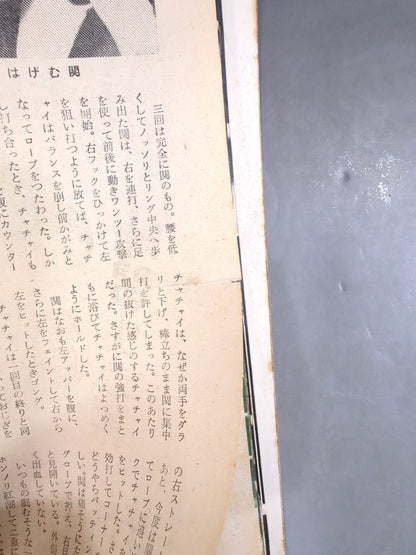 関むげは
三回は完全に関のもの。腰を低
くしてノッソリとリング中央へ歩
み出た関は、右を連打、さらに足
を使って前後に動きワンツー攻撃
を開始。右フックをひっかけて左
を狙い打つように放てば、チャチ
ャイはバランスを崩し前かがみと
なってロープをつたわった。しか
し打ち合ったとき、チャチャイも
腹にカウンター
チャチャイは、なぜか両手をダラ
リと下げ、棒立ちのまま関に集中
打を許してしまった。このあたり
間の抜けた感じのするチャチャイ
だった。さすがに関の強打をまと
もに浴びてチャチャイはよつめく
ようにホールドした。
関はなおも左アッパーを腹に、
さらに左をフェイントして右から
左をヒットしたときゴング。
チャチャイは二回目の終りと同
おにぎを
の右ストレー
あと、今度は関
てロープに追い
クでチャチャイを
をヒットした。さ
効打してコーナー
どうやらバッテン
しい。関は痛そうに左
グローブで抑え、右目
と見開いている。外傷
く出血していない。
いつもの眠むそうな
ホンノリ紅潮して二重に